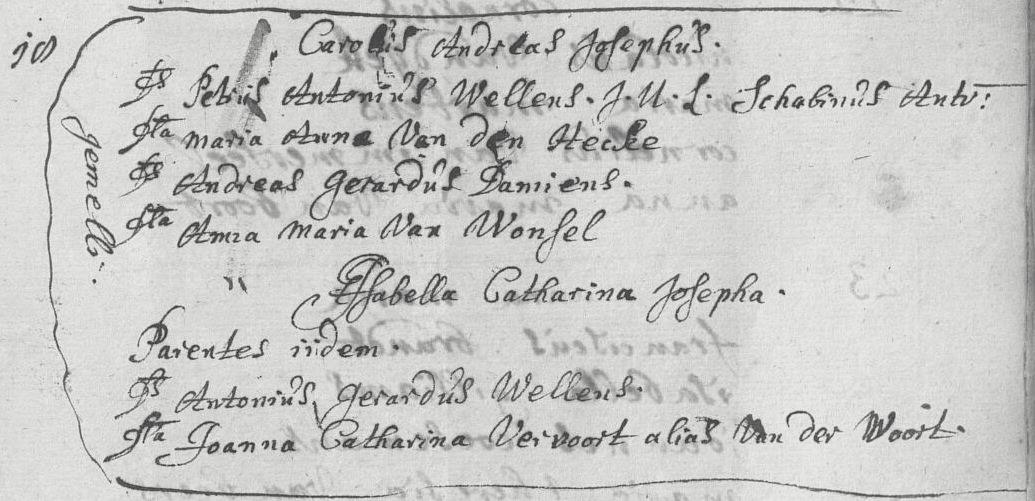 18
Carolus Andreas Josephus.
Ds Petrus Antonius Wellens. J. U. L. Schabinus Antv:
Dta Maria Anna Van den Hecke
Ds Andreas Gerardus Damiens.
Dta Anna Maria Van Wonsel
gemelli.
" Isabella Catharina Josepha.
Parentes iidem.
Ds Antonius Gerardus Wellens.
Dta Joanna Catharina Vervoort alias Van der Woort.